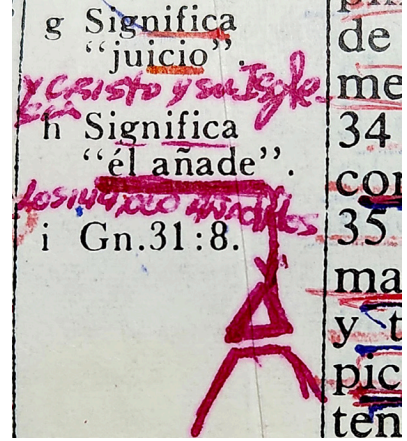 g Significa
"juicio".
y Cristo y su Igle-
sia
h Significa
"él añade".
Los 144,000 añadidos
i Gn.31:8.
de
me
34
con
35
ma
y t
pic
ten